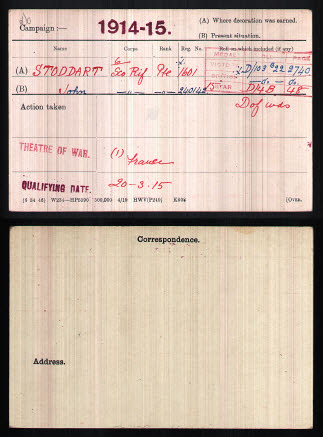 Campaign :— 1914-15. (A) Where decoration was earned.
(B) Present situation.
Name Corps Rank Reg. No. Roll on which included (if any)
MEDAL PAGE
(A) STODDART 6/ Sco Rif Pte 1/1601 VICTORY D/103 B22 2740
(B) John —"— —"— 240142 STAR D/4B 48
Action taken D of wds
THEATRE OF WAR. (1) France
QUALIFYING DATE. 20-3.15
(6 34 46) W234—HP5590 500,000 4/19 HWV(P240) K608 (Over.
Correspondence.
Address.